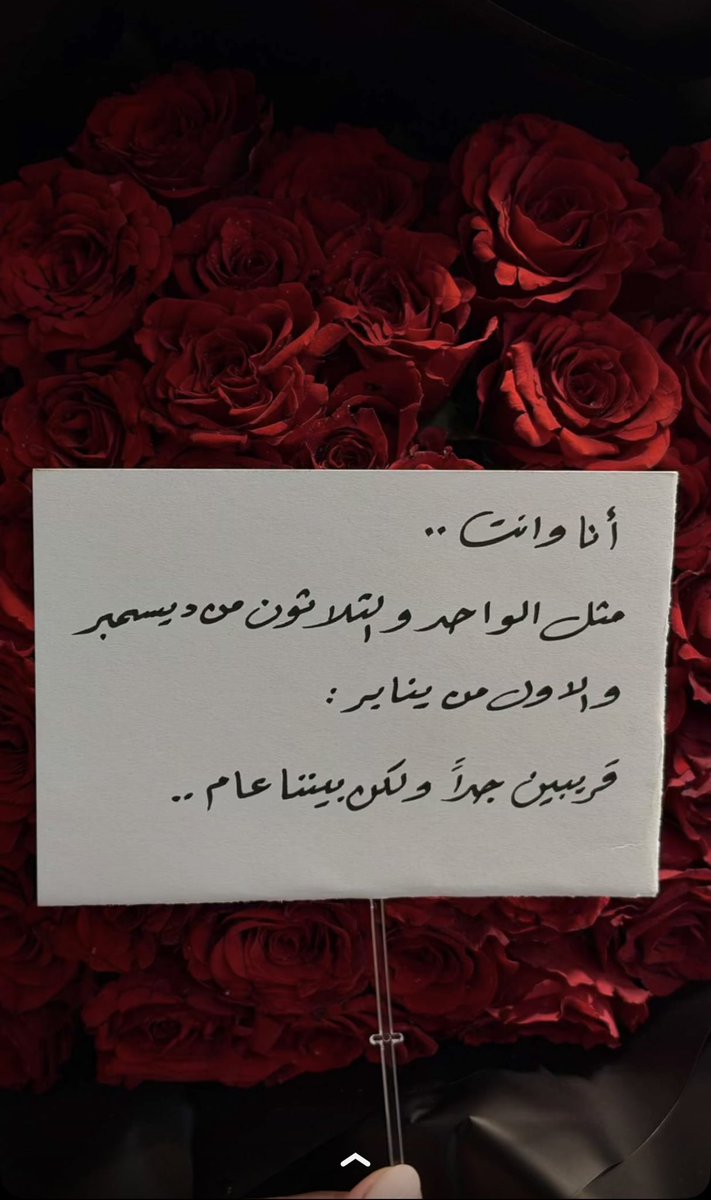 أنا وانت ..
مثل الواحد والثلاثون من ديسمبر
والاول من يناير :
قريبين جداً ولكن بيننا عام ..